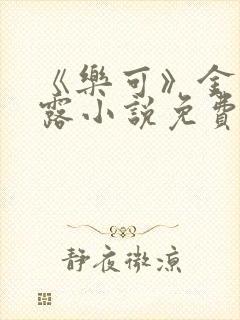 《樂可》金
露小說免費
靜夜微涼